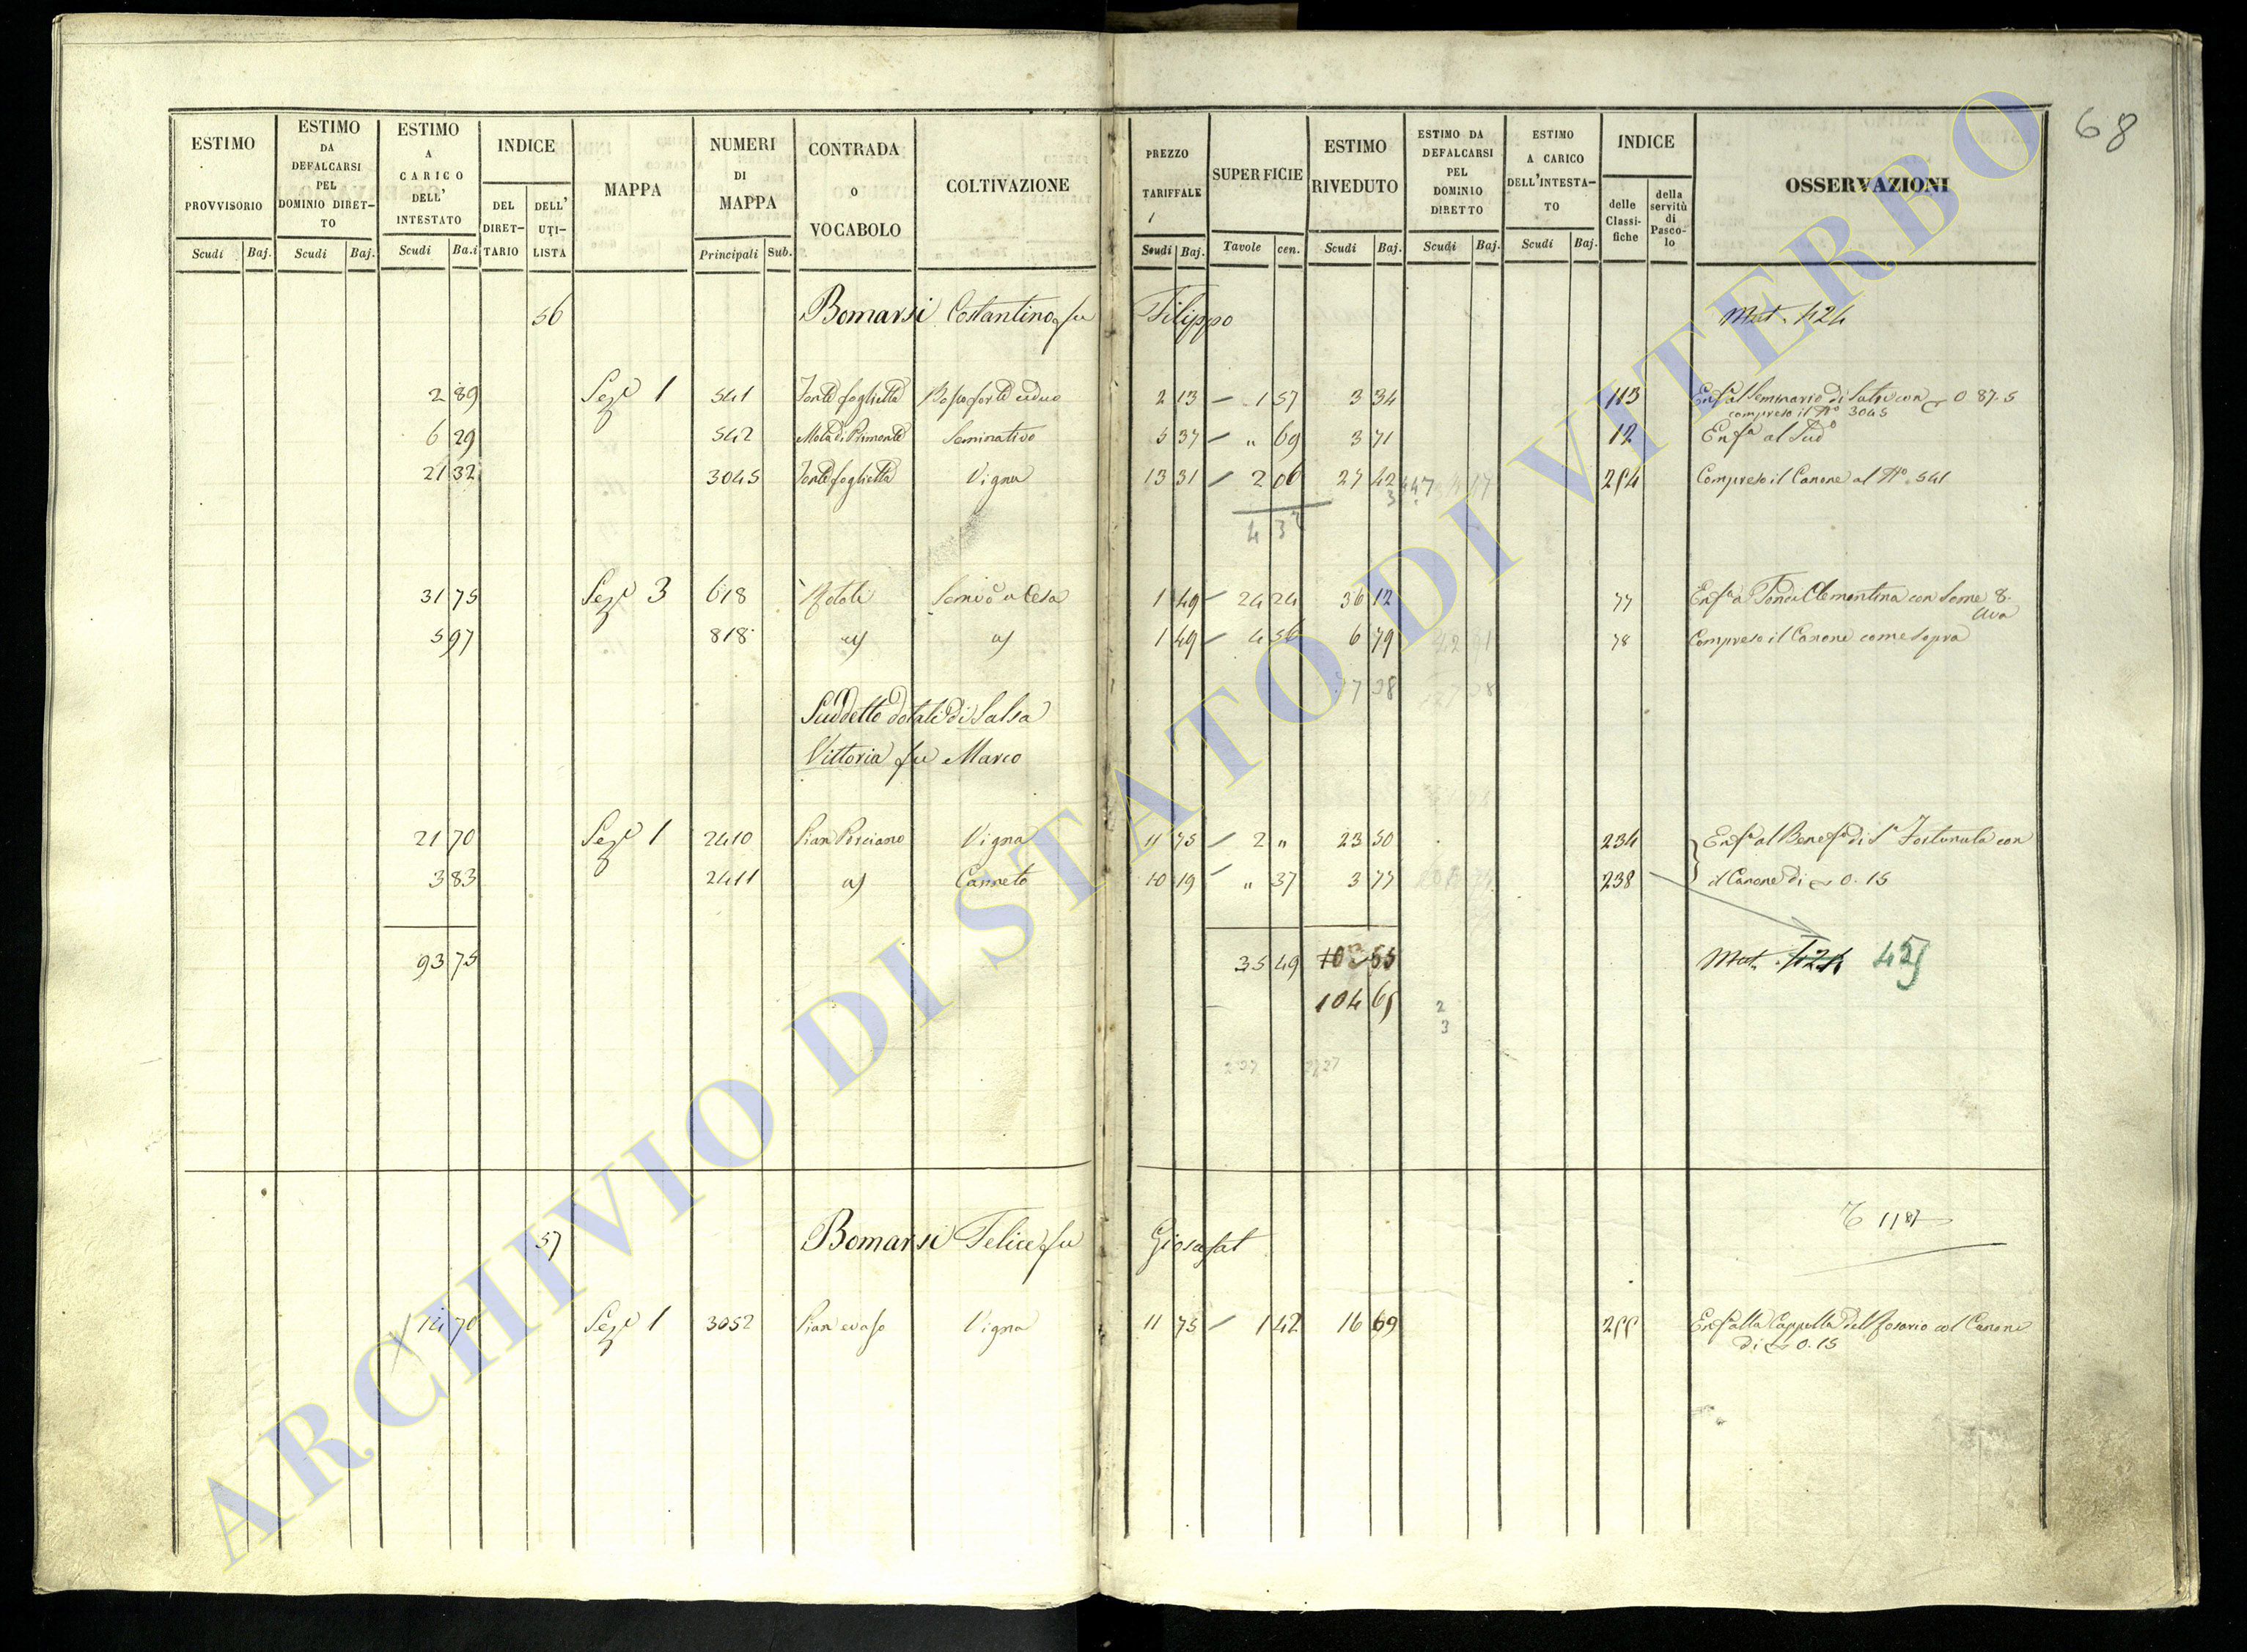 68
ESTIMO PROVVISORIO
ESTIMO DA DEFALCARSI PEL DOMINIO DIRET-TO
ESTIMO A CARICO DELL' INTESTATO
INDICE
DEL DIRET-TARIO
DELL' UTI-LISTA
MAPPA
NUMERI DI MAPPA
CONTRADA O VOCABOLO
COLTIVAZIONE
PREZZO TARIFFALE
SUPERFICIE
ESTIMO RIVEDUTO
ESTIMO DA DEFALCARSI PEL DOMINIO DIRETTO
ESTIMO A CARICO DELL'INTESTA-TO
INDICE
delle Classi-fiche
della servitù di Pasco-lo
OSSERVAZIONI
Scudi Baj. Scudi Baj. Scudi Ba.i Principali Sub. Scudi Baj. Tavole cen. Scudi Baj. Scudi Baj. Scudi Baj.
56 Bomarsi Costantino fu Filippo Mut. 424
2 89 Sez.e 1 541 2 13 1 57 3 34 113 Enf.a al Seminario di Sutri con 0 87.5
compreso il N.o 3045
6 29 542 Seminativo 5 37 " 69 3 71 12 Enf.a al Sud.o
21 32 3045 Vigna 13 31 2 06 27 42 254 Compreso il Canone al N.o 541
4 32
31 75 Sez.e 3 618 1 49 24 24 36 12 77 Enf.a a Clementina con Some 8.
Uva
5 97 818 1 49 4 56 6 79 78 Compreso il Canone come sopra
Suddetto dotali di Salsa
Vittoria fu Marco
21 70 Sez.e 1 2410 Pian Porciano Vigna 11 75 2 " 23 50 234 Enf.a al Benef.o di S.a Fortunata con
3 83 2411 Canneto 10 19 " 37 3 77 238 il Canone di 0.15
93 75 35 49 Mut. 424 425
104 65
2
3
57 Bomarsi Felice fu Giosafat
14 70 Sez.e 1 3052 Vigna 11 75 1 42 16 69 255 Enf. alla Cappella del Rosario col Canone
di 0.15
ARCHIVIO DI STATO DI VITERBO